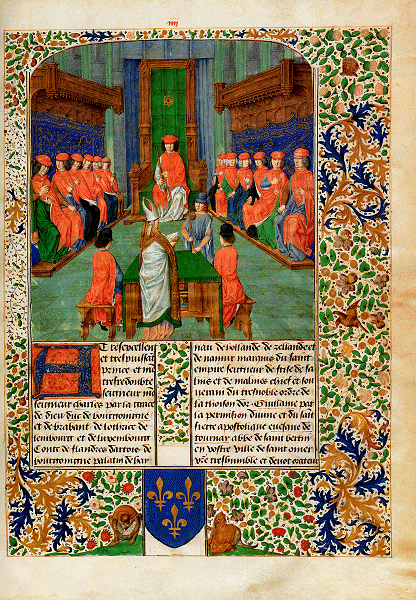 iiii
A Tresexcellent
et trespuissāt
prince et mō
tresredoubte
seigneur mō
seigneur charles par la grace
de dieu duc de bourgoingne
et de brabant de lothric de
lembourg et de luxembourg
Conte de flandres dartois de
bourgoingne palatin de hay
nau de hollande de zellande et
de namur marquis du saint
empire seigneur de frise de sa
lins et de malines chief et sou
uerain du tresnoble ordre de
la thoison dor Guillame par
la permission diuine et du saīt
siege apostolique euesque de
tournay abbe de saint bertin
en vostre ville de saint omer
vr̄e treshumble et deuot orateur